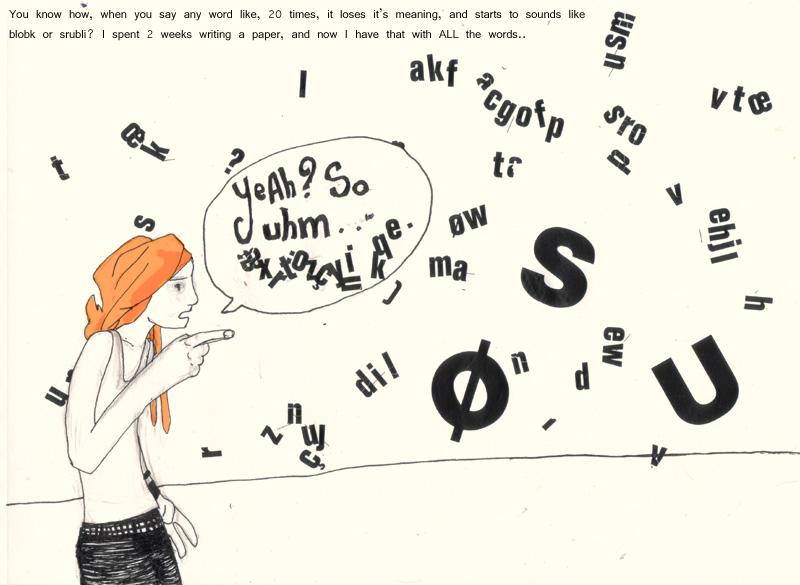 You know how, when you say any word like, 20 times, it loses it's meaning, and starts to sounds like
blobk or srubli? I spent 2 weeks writing a paper, and now I have that with ALL the words..
usm
akf
l
a
cgofp
vtœ
sro
p
œ
k
t
.?
yeAh? So
uhm...
v
s
øw
ehjl
qe.
k
ma
S
h
ew
n
d
dil
Ø
U
n
z
w
ç
r
v